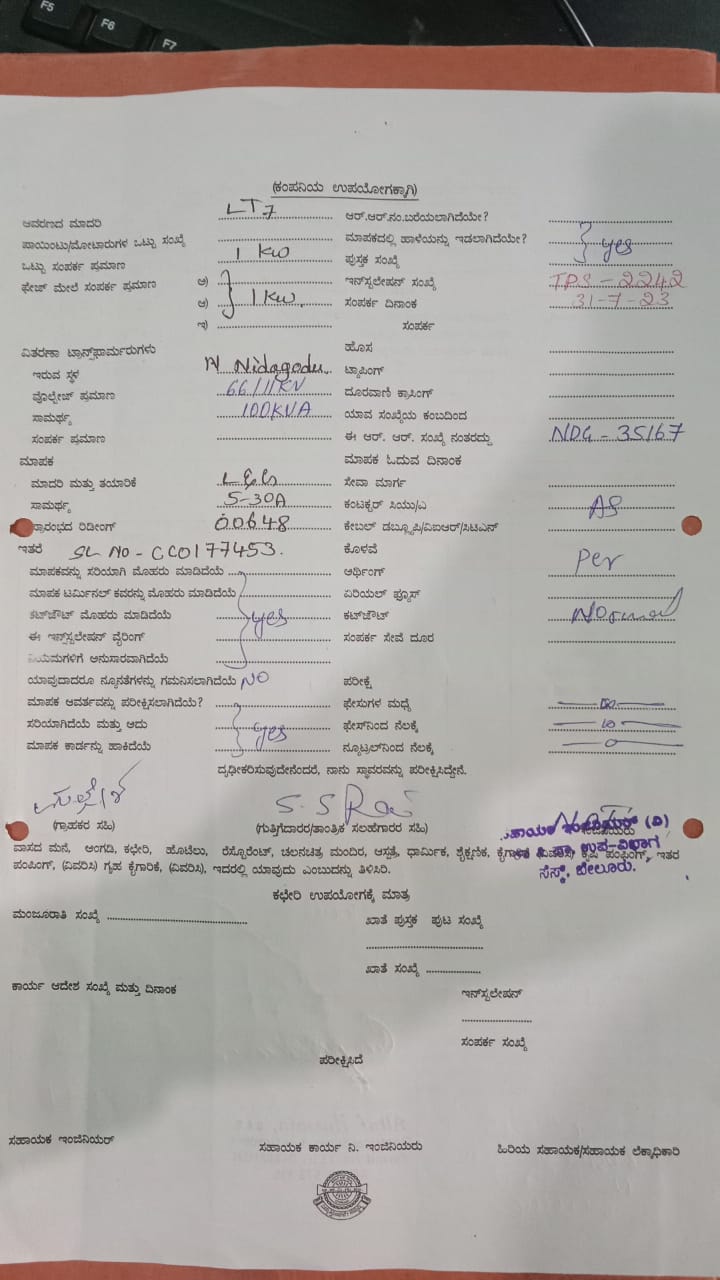 F5
F6
F7
(ಕಂಪನಿಯ ಉಪಯೋಗಕ್ಕಾಗಿ)
ಆವರಣದ ಮಾದರಿ LT7 ಆರ್.ಆರ್.ನಂ.ಬರೆಯಲಾಗಿದೆಯೇ?
ಪಾಯಿಂಟು/ಮೋಟಾರುಗಳ ಒಟ್ಟು ಸಂಖ್ಯೆ ಮಾಪಕದಲ್ಲಿ ಹಾಳೆಯನ್ನು ಇಡಲಾಗಿದೆಯೇ? yes
ಒಟ್ಟು ಸಂಪರ್ಕ ಪ್ರಮಾಣ 1 KW ಪುಸ್ತಕ ಸಂಖ್ಯೆ
ಫೇಜ್ ಮೇಲೆ ಸಂಪರ್ಕ ಪ್ರಮಾಣ ಅ) ಇನ್‌ಸ್ಟಲೇಷನ್ ಸಂಖ್ಯೆ TPS-2242
ಆ) 1 KW. ಸಂಪರ್ಕ ದಿನಾಂಕ 31-7-23
ಇ) ಸಂಪರ್ಕ
ವಿತರಣಾ ಟ್ರಾನ್ಸ್‌ಫಾರ್ಮರುಗಳು ಹೊಸ
ಇರುವ ಸ್ಥಳ N Nidagodu ಟ್ಯಾಪಿಂಗ್
ವೊಲ್ಟೇಜ್ ಪ್ರಮಾಣ 66/11KV ದೂರವಾಣಿ ಕ್ರಾಸಿಂಗ್
ಸಾಮರ್ಥ್ಯ 100KVA ಯಾವ ಸಂಖ್ಯೆಯ ಕಂಬದಿಂದ
ಸಂಪರ್ಕ ಪ್ರಮಾಣ ಈ ಆರ್. ಆರ್. ಸಂಖ್ಯೆ ನಂತರದ್ದು NDG-35167
ಮಾಪಕ ಮಾಪಕ ಓದುವ ದಿನಾಂಕ
ಮಾದರಿ ಮತ್ತು ತಯಾರಿಕೆ L&G ಸೇವಾ ಮಾರ್ಗ
ಸಾಮರ್ಥ್ಯ 5-30A ಕಂಟಕ್ಟರ್ ಸಿಯು/ಎ AS
ಪ್ರಾರಂಭದ ರಿಡೀಂಗ್ 00648 ಕೇಬಲ್ ಡಬ್ಲ್ಯೂಪಿ/ವಿಐಆರ್/ಸಿಟಿಎಸ್
ಇತರೆ SL NO - CC0177453. ಕೊಳವೆ Per
ಮಾಪಕವನ್ನು ಸರಿಯಾಗಿ ಮೊಹರು ಮಾಡಿದೆಯೆ ಆರ್ಥಿಂಗ್
ಮಾಪಕ ಟರ್ಮಿನಲ್ ಕವರನ್ನು ಮೊಹರು ಮಾಡಿದೆಯೆ ಏರಿಯಲ್ ಫ್ಯೂಸ್
ಕಟ್‌ಜೌಟ್ ಮೊಹರು ಮಾಡಿದೆಯೆ yes ಕಟ್‌ಜೌಟ್ Normal
ಈ ಇನ್‌ಸ್ಟಲೇಷನ್ ವೈರಿಂಗ್ ಸಂಪರ್ಕ ಸೇವೆ ದೂರ
ನಿಯಮಗಳಿಗೆ ಅನುಸಾರವಾಗಿದೆಯೆ
ಯಾವುದಾದರೂ ನ್ಯೂನತೆಗಳನ್ನು ಗಮನಿಸಲಾಗಿದೆಯೆ NO ಪರೀಕ್ಷೆ
ಮಾಪಕ ಆವರ್ತವನ್ನು ಪರೀಕ್ಷಿಸಲಾಗಿದೆಯೆ? ಫೇಸುಗಳ ಮಧ್ಯೆ
ಸರಿಯಾಗಿದೆಯೆ ಮತ್ತು ಅದು yes ಫೇಸ್‌ನಿಂದ ನೆಲಕ್ಕೆ
ಮಾಪಕ ಕಾರ್ಡನ್ನು ಹಾಕಿದೆಯೆ ನ್ಯೂಟ್ರಲ್‌ನಿಂದ ನೆಲಕ್ಕೆ
ದೃಢೀಕರಿಸುವುದೇನೆಂದರೆ, ನಾನು ಸ್ಥಾವರವನ್ನು ಪರೀಕ್ಷಿಸಿದ್ದೇನೆ.
S. S Rai
(ಗ್ರಾಹಕರ ಸಹಿ) (ಗುತ್ತಿಗೆದಾರರ/ತಾಂತ್ರಿಕ ಸಲಹೆಗಾರರ ಸಹಿ)
ಉಪ-ವಿಭಾಗ
ಸೆಸ್ಕ್, ಬೇಲೂರು.
ವಾಸದ ಮನೆ, ಅಂಗಡಿ, ಕಛೇರಿ, ಹೊಟೆಲು, ರೆಸ್ಟೋರೆಂಟ್, ಚಲನಚಿತ್ರ ಮಂದಿರ, ಆಸ್ಪತ್ರೆ, ಧಾರ್ಮಿಕ, ಶೈಕ್ಷಣಿಕ, ಕೈಗಾರಿಕೆ (ವಿವರಿಸಿ) ಕೃಷಿ ಪಂಪಿಂಗ್, ಇತರ
ಪಂಪಿಂಗ್, (ವಿವರಿಸಿ) ಗೃಹ ಕೈಗಾರಿಕೆ, (ವಿವರಿಸಿ), ಇದರಲ್ಲಿ ಯಾವುದು ಎಂಬುದನ್ನು ತಿಳಿಸಿರಿ.
ಕಛೇರಿ ಉಪಯೋಗಕ್ಕೆ ಮಾತ್ರ
ಮಂಜೂರಾತಿ ಸಂಖ್ಯೆ ಖಾತೆ ಪುಸ್ತಕ ಪುಟ ಸಂಖ್ಯೆ
ಖಾತೆ ಸಂಖ್ಯೆ
ಕಾರ್ಯ ಆದೇಶ ಸಂಖ್ಯೆ ಮತ್ತು ದಿನಾಂಕ ಇನ್‌ಸ್ಟಲೇಷನ್
ಸಂಪರ್ಕ ಸಂಖ್ಯೆ
ಪರೀಕ್ಷಿಸಿದೆ
ಸಹಾಯಕ ಇಂಜಿನಿಯರ್ ಸಹಾಯಕ ಕಾರ್ಯ ನಿ. ಇಂಜಿನಿಯರು ಹಿರಿಯ ಸಹಾಯಕ/ಸಹಾಯಕ ಲೆಕ್ಕಾಧಿಕಾರಿ